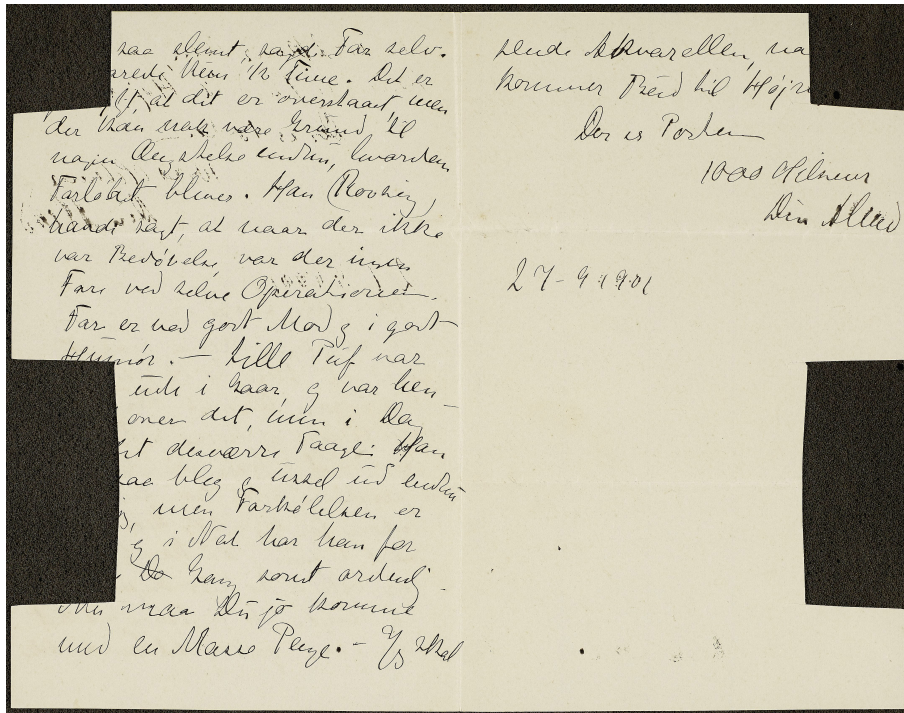 saa slemt, Far selv.
Time. Det er
at det er overstaaet, men
der kan nok være Grund til
nogen Ængstelse endnu, hvordan
Forløbet bliver. Han (Rovsing)
havde sagt, at naar der ikke
var Bedøvelse var der ingen
Fare ved selve Operationen.
Far er ved godt Mod og i godt
Humør. – Lille Puf var
ude i Gaar og var hen-
over det, men i Dag
desværre Taage. Han
saa bleg og ussel ud endnu
men Forkølelsen er
og i Nat har han for
Gang sovet ordenlig
Nu maa Du jo komme
med en Masse Penge. – Jeg skal
sende Akvarellen, naa
kommer Bud til Højr
Der er Posten
1000 Hilsener
Din Alhed
27-9-1901